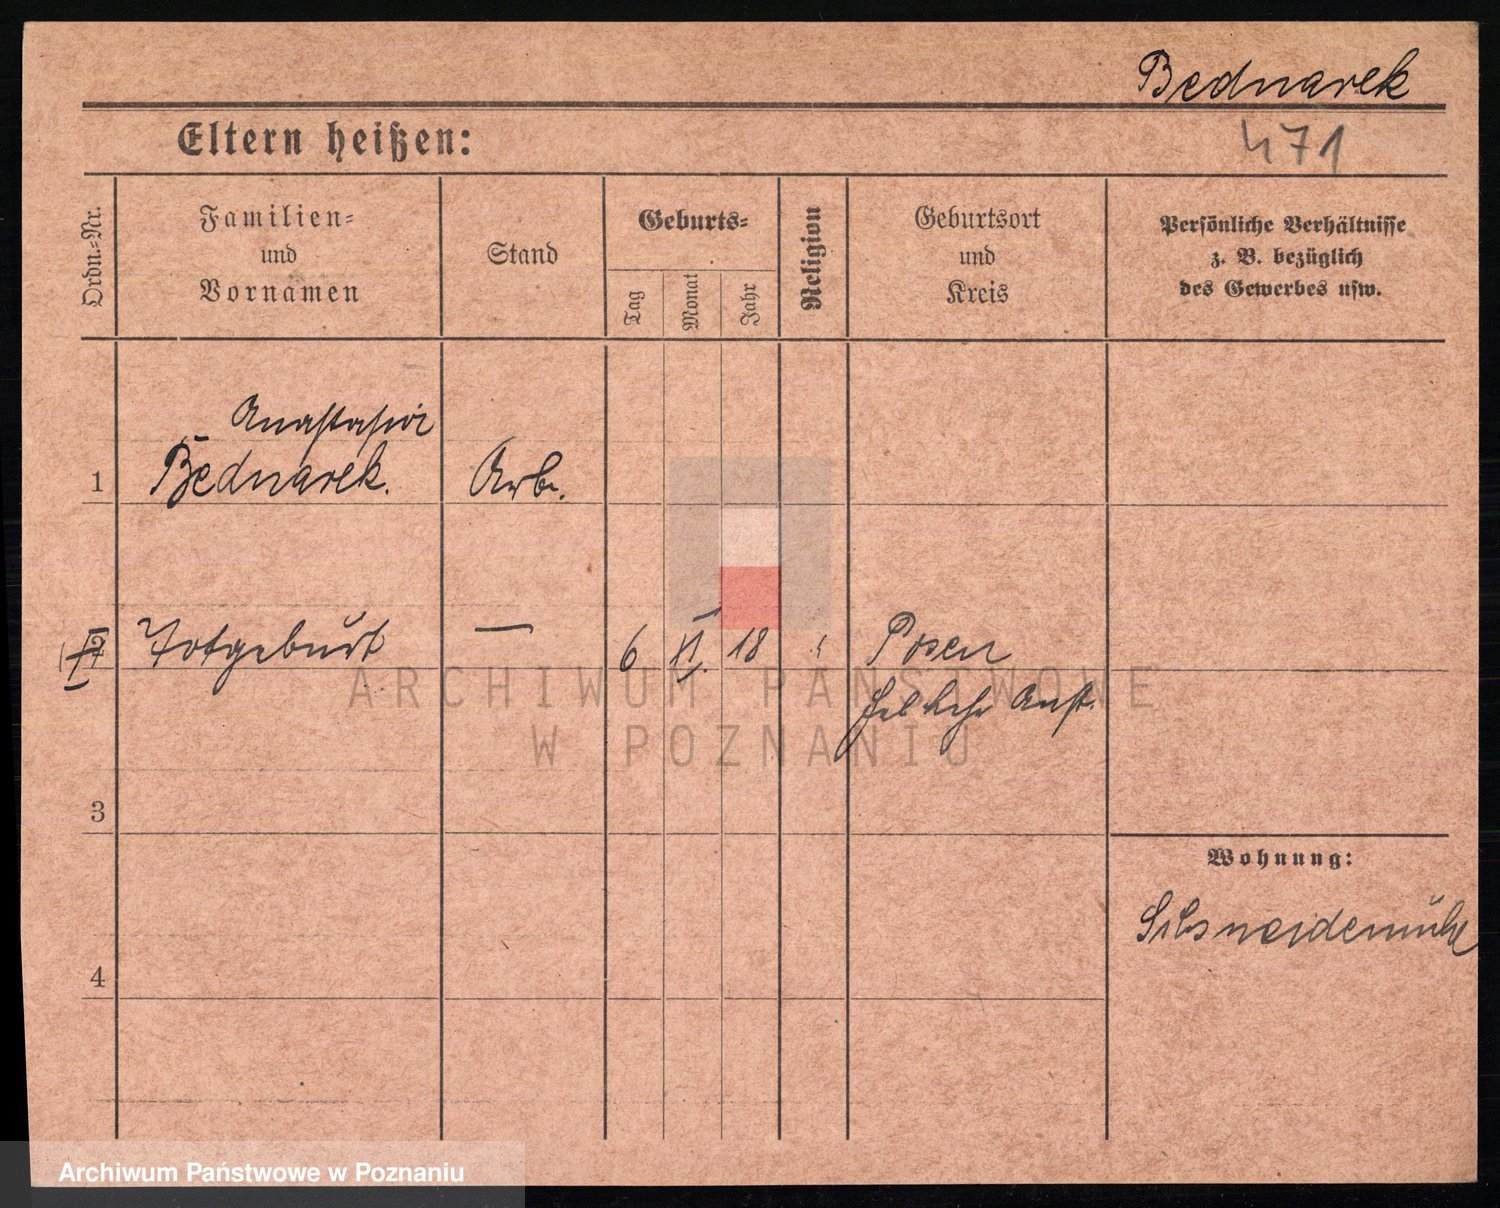 Bednarek
Eltern heißen:
471
Ordn.=Nr.
Familien=
und
Vornamen
Stand
Geburts=
Tag
Monat
Jahr
Religion
Geburtsort
und
Kreis
Persönliche Verhältnisse
z. B. bezüglich
des Gewerbes usw.
Anastasia
1 Bednarek. Arb.
2 Totgeburt — 6 XI. 18 Posen
Heb Lehr Anst.
ARCHIWUM PAŃSTWOWE
W POZNANIU
3
Wohnung:
Schneidemühl
4
Archiwum Państwowe w Poznaniu